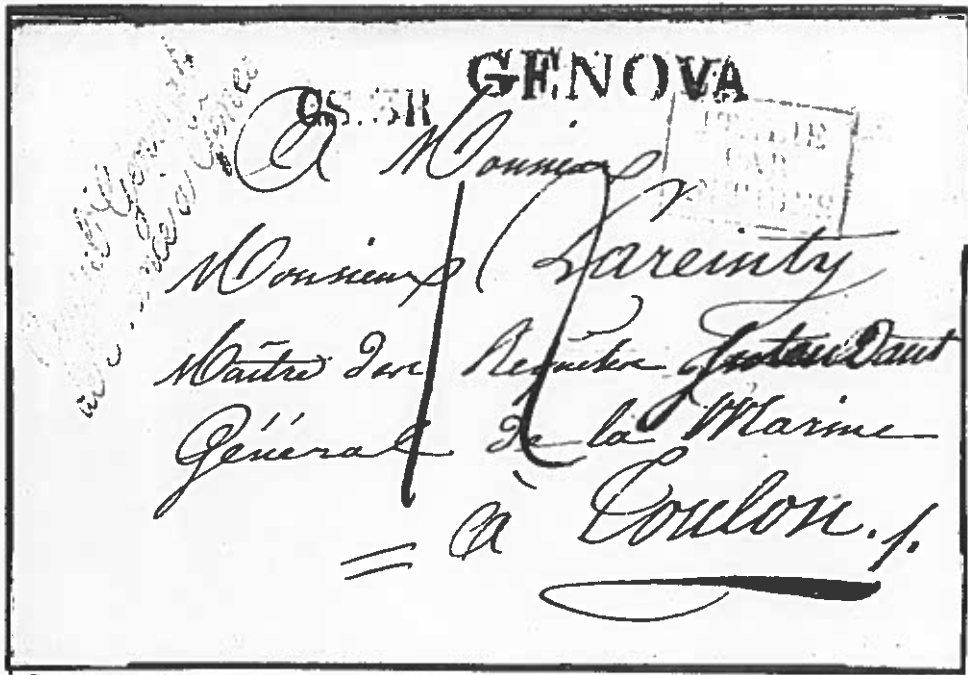 GENOVA
CS.3R
A Monsieur
Monsieur Lareinty
Maître des Requêtes Intendant
Général de la Marine
à Toulon.
PAR